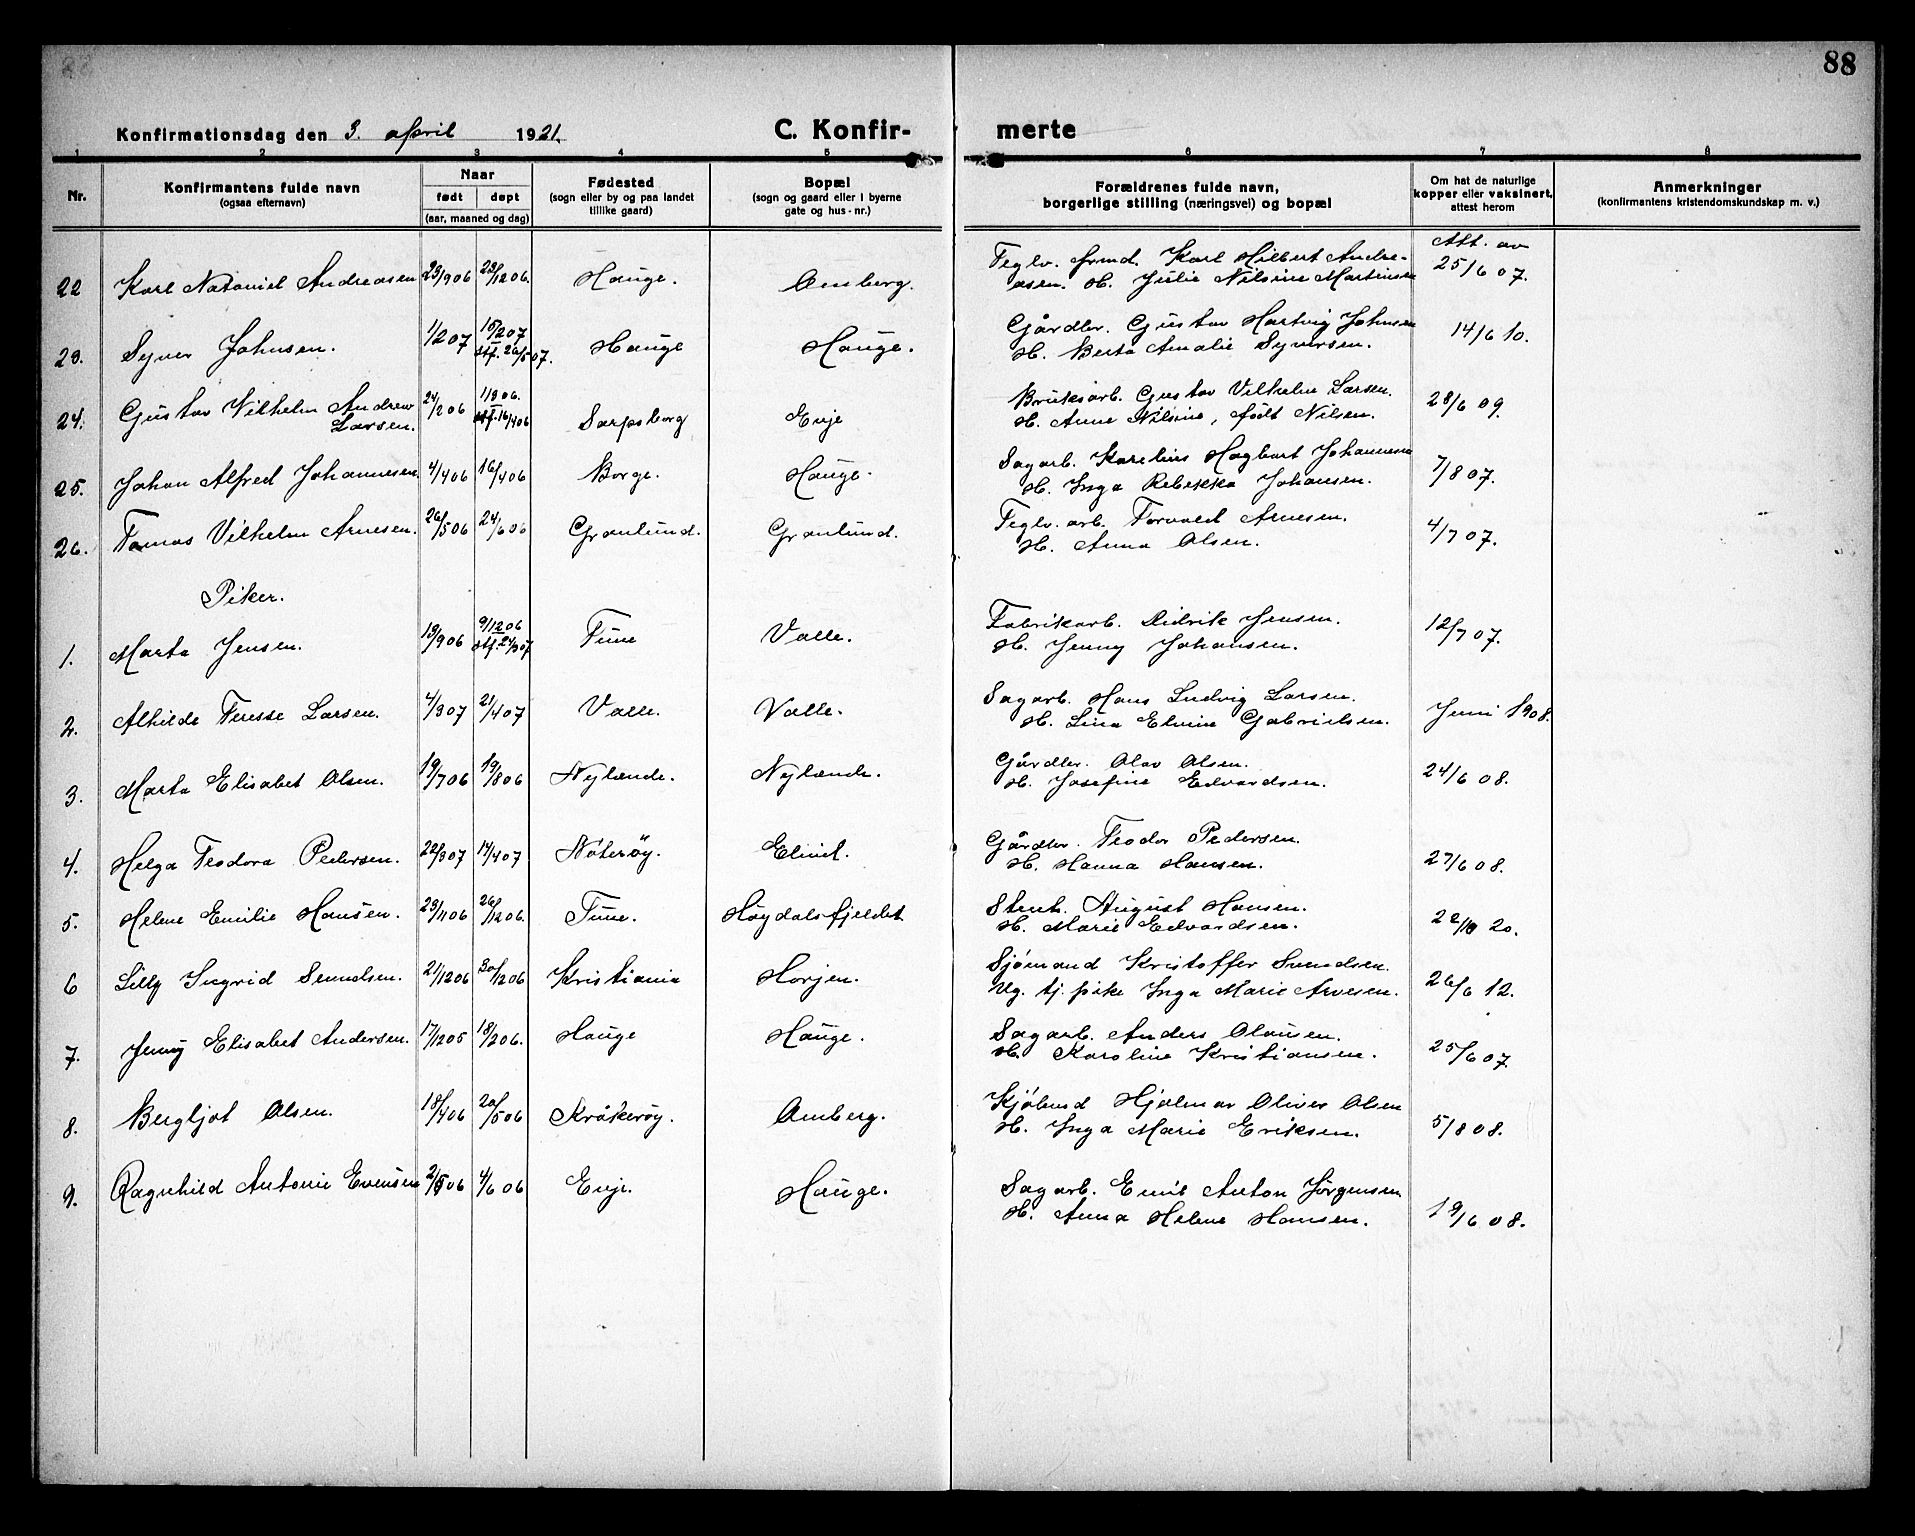 88
Konfirmationsdag den 3. april 1921.
C. Konfir-
merte
1 2 3 4 5 6 7 8
Nr.
Konfirmantens fulde navn
(ogsaa efternavn)
Naar
født døpt
(aar, maaned og dag)
Fødested
(sogn eller by og paa landet
tillike gaard)
Bopæl
(sogn og gaard eller i byerne
gate og hus-nr.)
Forældrenes fulde navn,
borgerlige stilling (næringsvei) og bopæl
Om hat de naturlige
kopper eller vaksinert,
attest herom
Anmerkninger
(konfirmantens kristendomskundskap m. v.)
Att. av
22 Karl Nataniel Andreasen 23/9 06 23/12 06. Hauge. Amberg. Teglv. frmd. Karl Hilbert Andre-
asen. H. Julie Nilsine Martinsen 25/6 07.
23. Syver Johnsen. 1/2 07 15/2 07 Hauge Hauge. Gårdbr. Gustav Hartvig Johnsen 14/6 10.
stf. 26/5 07. H. Berta Amalie Syversen.
24. Gustav Vilhelm Andrew 24/2 06 1/3 06. Sarpsborg Evje Bruksarb. Gustav Vilhelm Larsen. 28/6 09.
Larsen. stf. 16/4 06 H. Anne Nilsine, født Nilsen.
25. Johan Alfred Johannesen. 4/4 06 16/4 06 Borge. Hauge. Sagarb. Karelius Hagbart Johannesen 7/8 07.
H. Inga Rebekka Johansen.
26. Tomas Vilhelm Arnesen. 26/5 06 24/6 06 Grønlund. Grønlund. Teglv. arb. Torvald Arnesen. 4/7 07.
H. Anna Olsen.
Piker.
1. Marta Jensen. 13/9 06 9/12 06 Tune Valle. Fabrikarb. Didrik Jensen. 12/7 07.
stf. 24/3 07 H. Jenny Johansen.
2. Alhilde Terese Larsen. 4/3 07 21/4 07 Valle. Valle. Sagarb. Hans Ludvig Larsen. Juni 1908.
H. Lina Elvine Gabrielsen.
3. Marta Elisabet Olsen. 19/7 06 19/8 06 Nylænde. Nylænde. Gårdbr. Olav Olsen. 24/6 08.
H. Josefine Edvardsen.
4. Helga Teodora Pedersen. 22/3 07 14/4 07 Nøterøy. Elind. Gårdbr. Teodor Pedersen. 27/6 08.
H. Hanna Hansen.
5. Helene Emilie Hansen. 23/11 06 26/12 06. Tune. Høydalsfjeldet Stenh. August Hansen. 22/10 20.
H. Marie Edvardsen.
6 Lilly Ingrid Svendsen. 21/12 06 30/12 06 Kristiania Horjen. Sjømand Kristoffer Svendsen. 26/6 12.
Ug. tj. pike Inga Marie Arvesen.
7. Jenny Elisabet Andersen. 17/12 05 18/2 06. Hauge Hauge. Sagarb. Anders Olausen. 25/6 07.
H. Karoline Kristiansen.
8. Bergljot Olsen. 18/4 06 20/5 06 Kråkerøy. Amberg. Kjøbmd Hjalmar Oliver Olsen 5/8 08.
H. Inga Marie Eriksen.
9. Ragnhild Antonie Evensen 2/5 06 4/6 06 Evje. Hauge. Sagarb. Emil Anton Jørgensen 19/6 08.
H. Anna Helene Hansen.